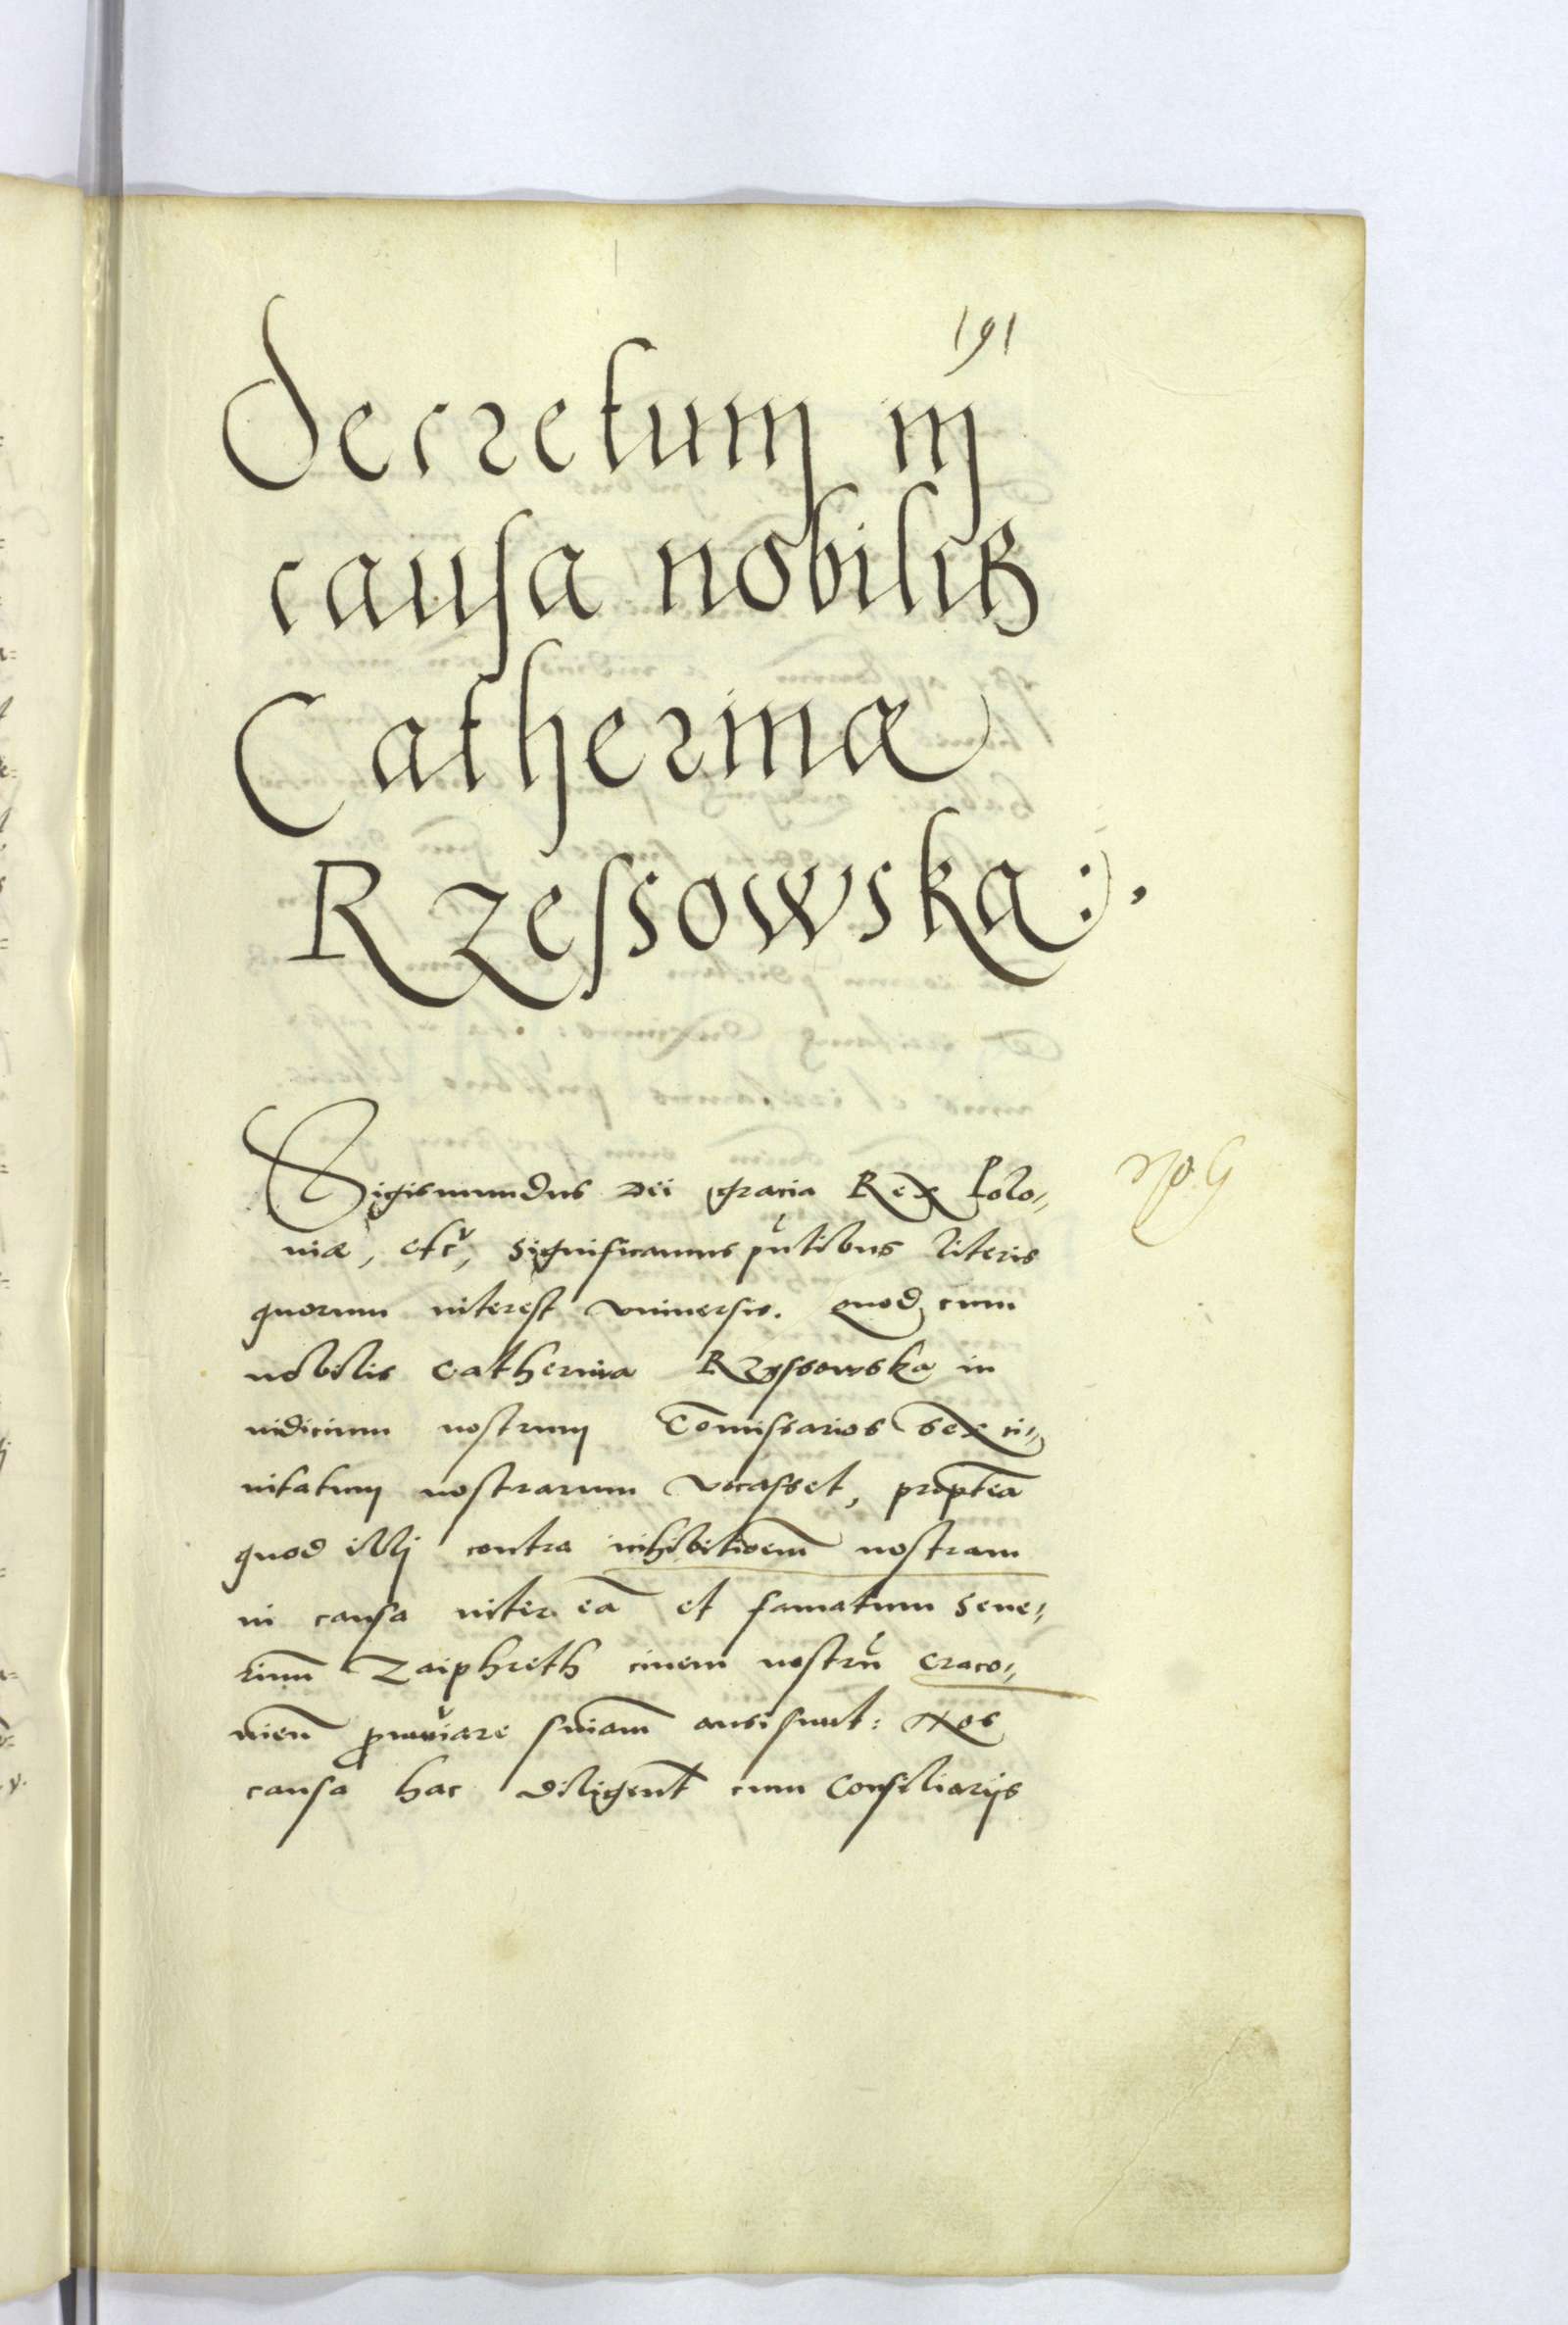 191
Decretum in
causa nobilis
Catherinæ
Rzessowska :,
Sigismundus Dei gracia Rex Polo„
niæ, etc, significamus pntibus literis
quorum interest vniversis. Quod cum
nobilis Catherina Rzessowska in
iudicium nostrum Comissarios sex ci„
vitatum nostrarum vocasset, proptea
quod illi contra inhibitioem nostram
in causa inter ea et famatum Seue„
rinum Zaiphreth ciuem nostru Craco„
vien pronuciare sniam ausi sunt: Nos
causa hac diligent cum Consiliarijs